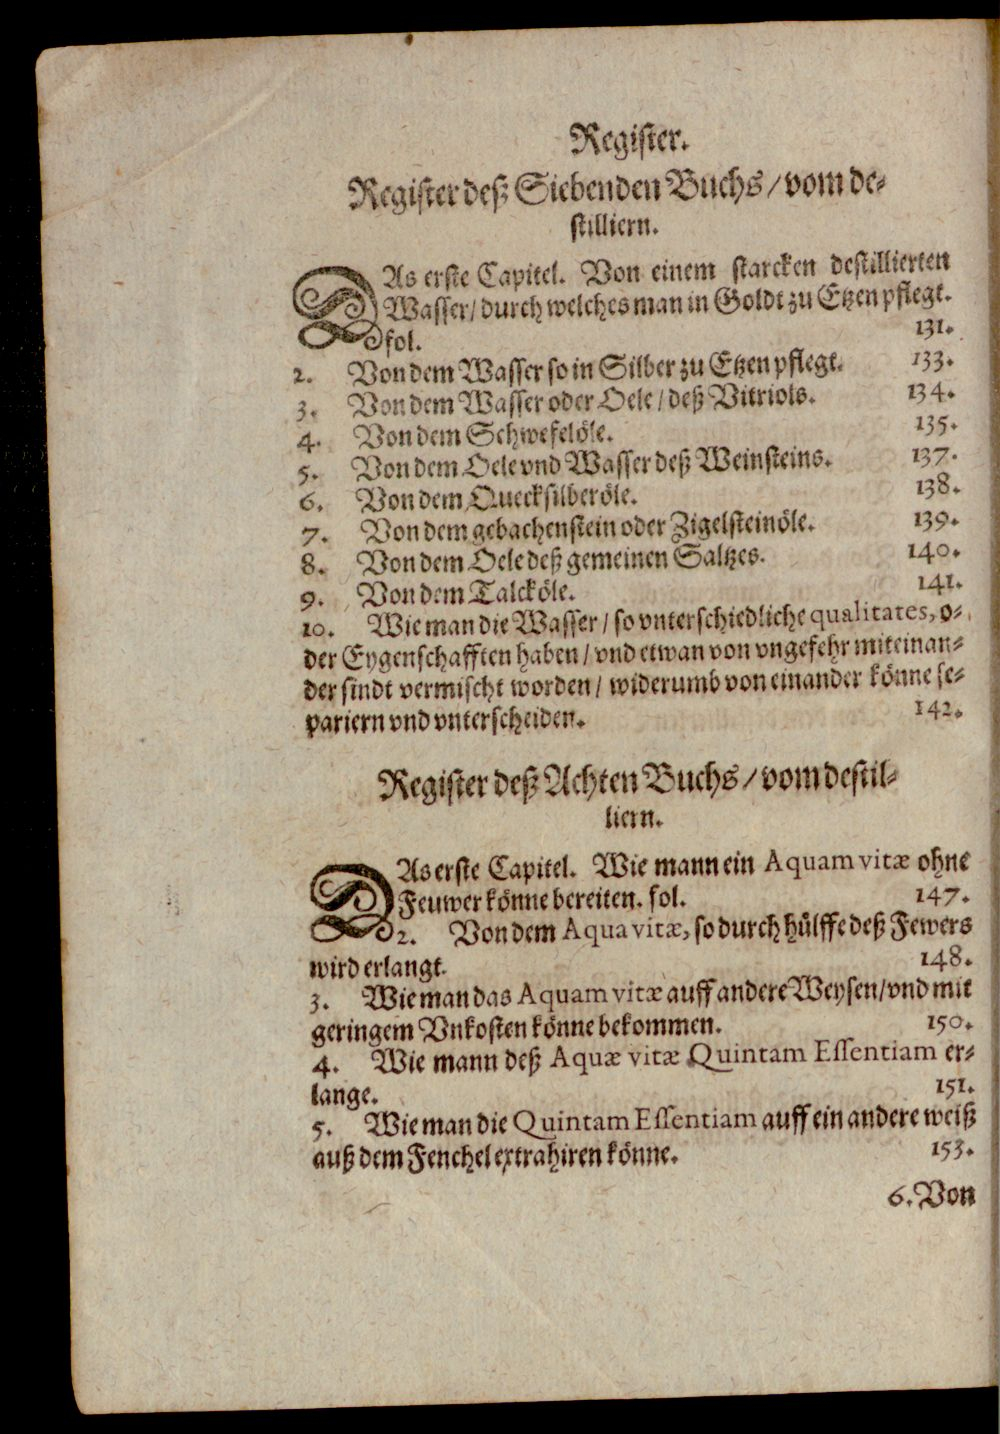 Register.
Register deß Siebenden Buchs/ vom de-
stilliern.
DAs erste Capitel. Von einem starcken destillierten
Wasser/ durch welches man in Goldt zu Etzen pflegt.
fol. 131.
2. Von dem Wasser so in Silber zu Etzen pflegt. 133.
3. Von dem Wasser oder Oele/ deß Vitriols. 134.
4. Von dem Schwefelöle. 135.
5. Von dem Oele vnd Wasser deß Weinsteins. 137.
6. Von dem Quecksilberöle. 138.
7. Von dem gebachenstein oder Zigelsteinöle. 139.
8. Von dem Oele deß gemeinen Saltzes. 140.
9. Von dem Talcköle. 141.
10. Wie man die Wasser/ so vnterschiedliche qualitates, o-
der Eygenschafften haben/ vnd etwan von vngefehr miteinan-
der sindt vermischt worden/ widerumb von einander könne se-
pariern vnd vnterscheiden. 142.
Register deß Achten Buchs/ vom destil-
liern.
DAs erste Capitel. Wie mann ein Aquam vitæ ohne
Feuwer könne bereiten. fol. 147.
2. Von dem Aqua vitæ, so durch hülffe deß Fewers
wird erlangt. 148.
3. Wie man das Aquam vitæ auff andere Weysen/ vnd mit
geringem Vnkosten könne bekommen. 150.
4. Wie mann deß Aquæ vitæ Quintam Essentiam er-
lange. 151.
5. Wie man die Quintam Essentiam auff ein andere weiß
auß dem Fenchel extrahiren könne. 153.
6. Von